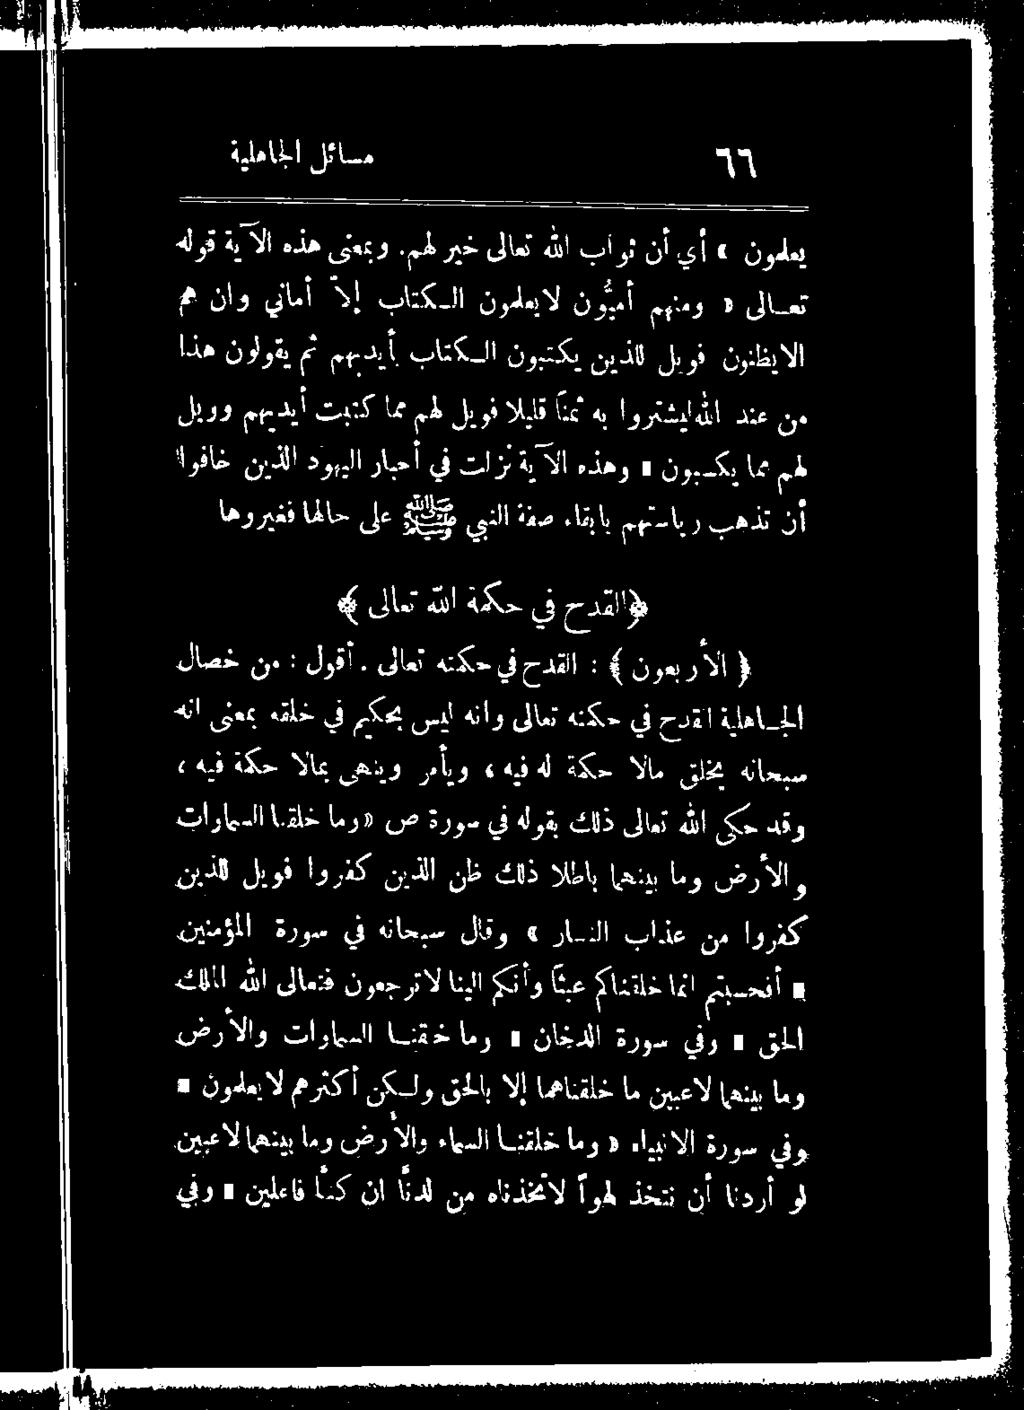 ٦٦ مسائل الجاهلية
يعلمون » أي أن ثواب الله تعالى خير لهم. وبمعنى هذه الآية قوله
تعالى « ومنهم أميُّون لا يعلمون الكتاب إلاّ أماني وان هم
الا يظنون فويل للذين يكتبون الكتاب بأيديهم ثم يقولون هذا
من عند الله ليشتروا به ثمناً قليلا فويل لهم مما كتبت أيديهم وويل
لهم مما يكسبون » وهذه الآية نزلت في أحبار اليهود الذين خافوا
أن تذهب رياستهم بابقاء صفة النبي ﷺ على حالها فغيروها
﴿ القدح في حكمة الله تعالى ﴾
﴿ الأربعون ﴾ : القدح في حكمته تعالى . أقول : من خصال
الجاهلية القدح في حكمته تعالى وانه ليس بحكيم في خلقه بمعنى انه
سبحانه يخلق مالا حكمة له فيه ، ويأمر وينهى بمالا حكمة فيه ،
وقد حكى الله تعالى ذلك بقوله في سورة ص «وما خلقنا السماوات
والأرض وما بينهما باطلا ذلك ظن الذين كفروا فويل للذين
كفروا من عذاب النار » وقال سبحانه في سورة المؤمنين
« أفحسبتم انما خلقناكم عبثاً وأنكم الينا لا ترجعون فتعالى الله الملك
الحق » وفي سورة الدخان « وما خقنا السماوات والأرض
وما بينهما لاعبين ما خلقناهما إلا بالحق ولكن أكثرهم لا يعلمون »
وفي سورة الانبياء « وما خلقنا السماء والأرض وما بينهما لاعبين
لو أردنا أن نتخذ لهواً لاتخذناه من لدنّا ان كنّا فاعلين » وفي